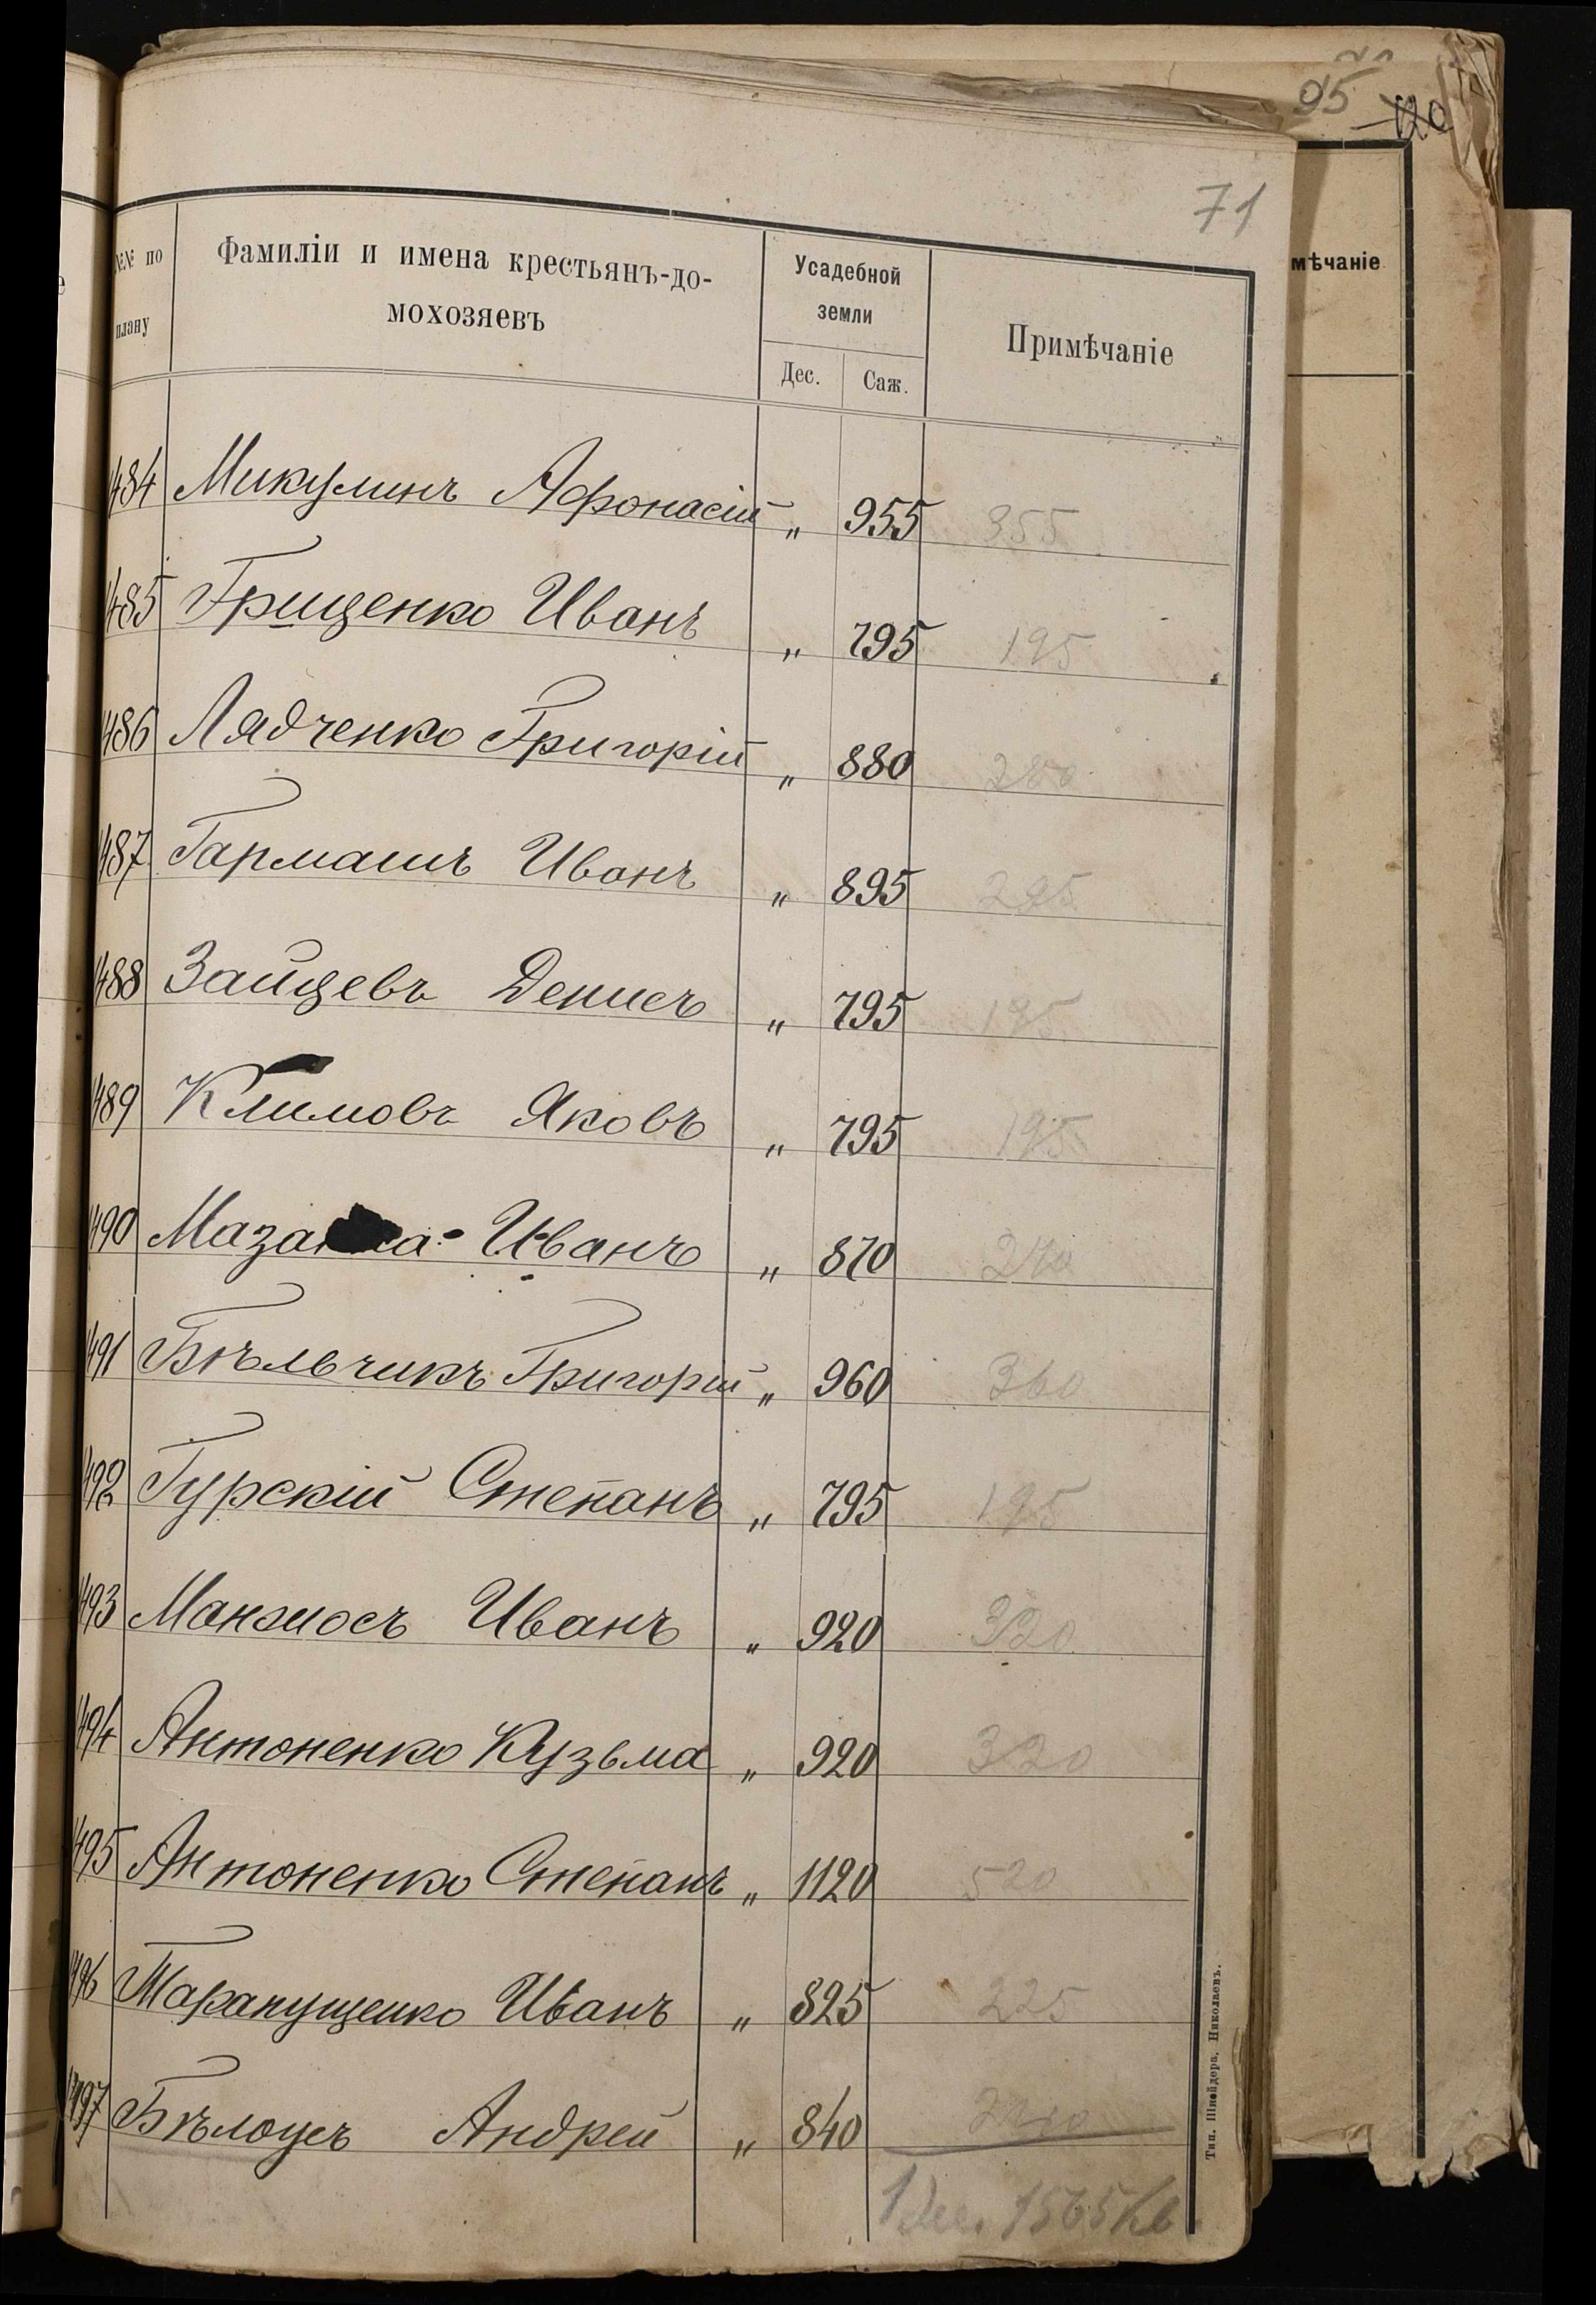 95 120
71
№№ по плану
Фамиліи и имена крестьянъ-до-
мохозяевъ
Усадебной
земли
Дес. Саж.
Примѣчаніе
мѣчаніе
484 Микулинъ Афонасій „ 955 355
485 Грищенко Иванъ „ 795 195
486 Лядченко Григорій „ 880 280
487 Гармашъ Иванъ „ 895 295
488 Зайцевъ Денисъ „ 795 195
489 Климовъ Яковъ „ 795 195
490 Иванъ „ 870 270
491 Бѣльчикъ Григорій „ 960 360
492 Гурскій Степанъ „ 795 195
493 Манзюсъ Иванъ „ 920 320
494 Антоненко Кузьма „ 920 320
495 Антоненко Степанъ „ 1120 520
496 Тарапущенко Иванъ „ 825 225
497 Бѣлоусъ Андрей „ 840 240
1 дес. 1565 кв
Тип. Шнейдера, Николаевъ.